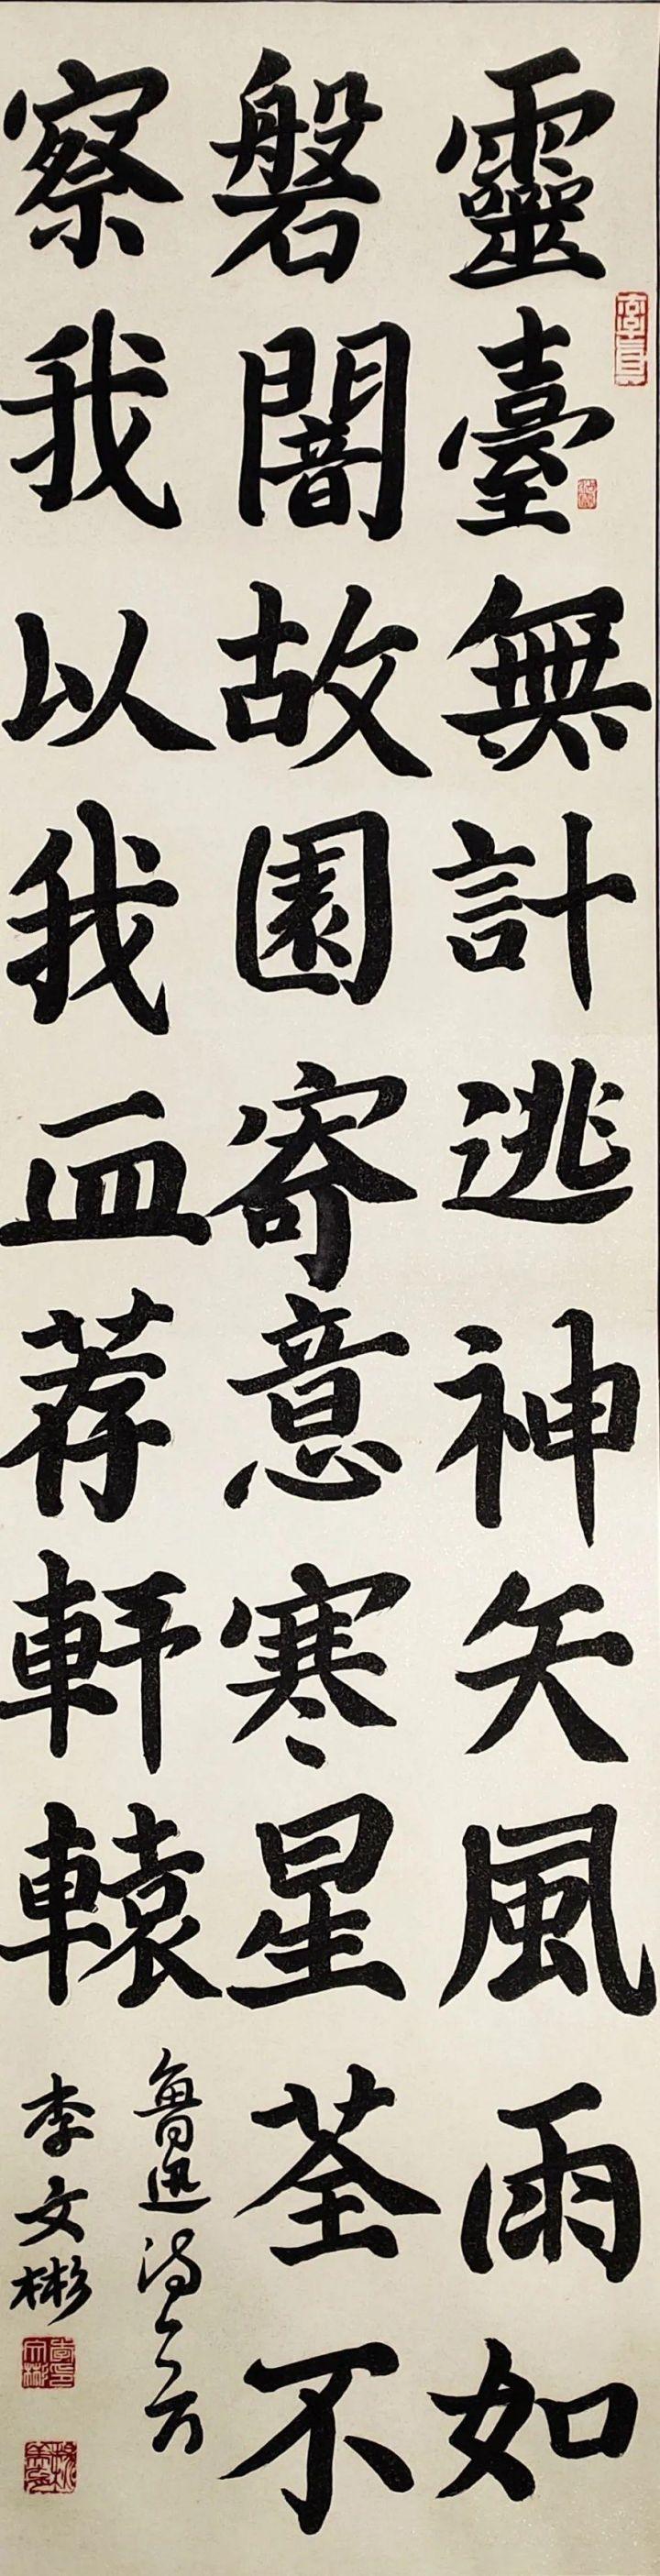 靈臺無計逃神矢風雨如
磐闇故園寄意寒星荃不
察我以我血荐軒轅
魯迅詩一首
李文彬